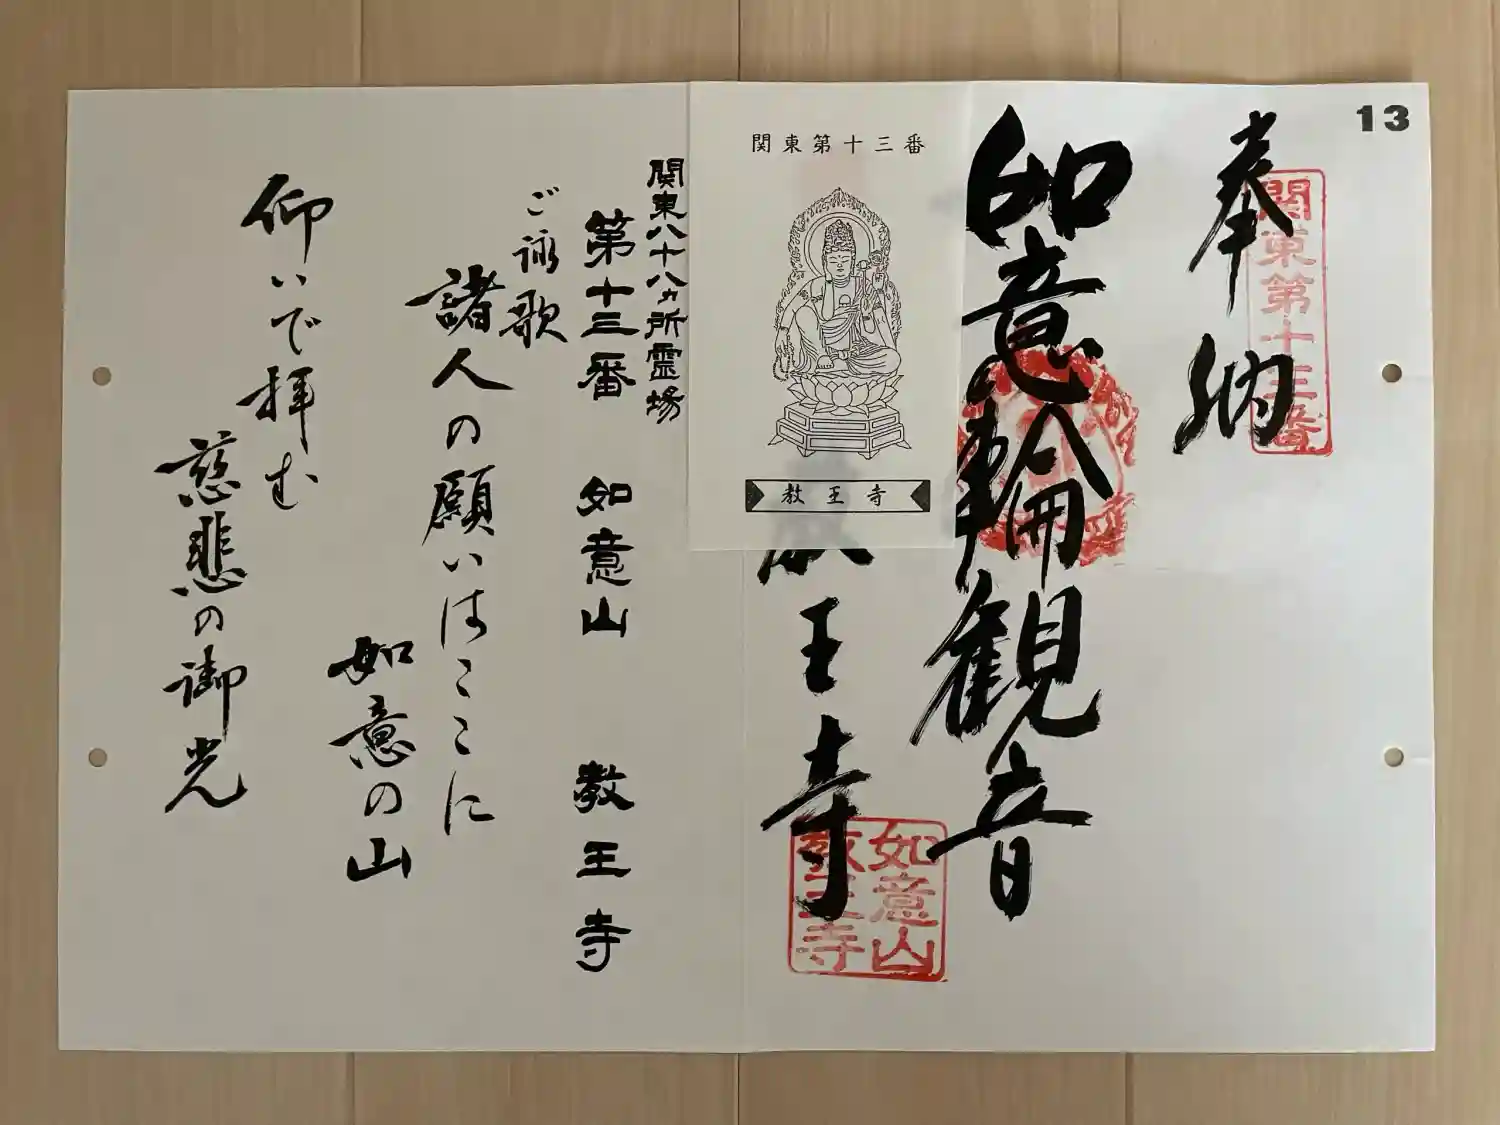 13
奉納
関東第十三番
如意輪観音
教王寺
如意山
教王寺
関東第十三番
教王寺
関東八十八ヵ所霊場
第十三番 如意山 教王寺
ご詠歌
諸人の願いはここに
如意の山
仰いで拝む
慈悲の御光